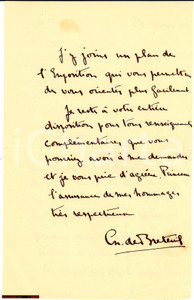 J'y joins un plan de
l'Exposition qui vous permettra
de vous orienter plus facilement.
Je reste à votre entière
disposition pour tous renseignements
complémentaires que vous
pourriez avoir à me demander
et je vous prie d'agréer, Princesse
l'assurance de mes hommages
très respectueux
de Breteuil